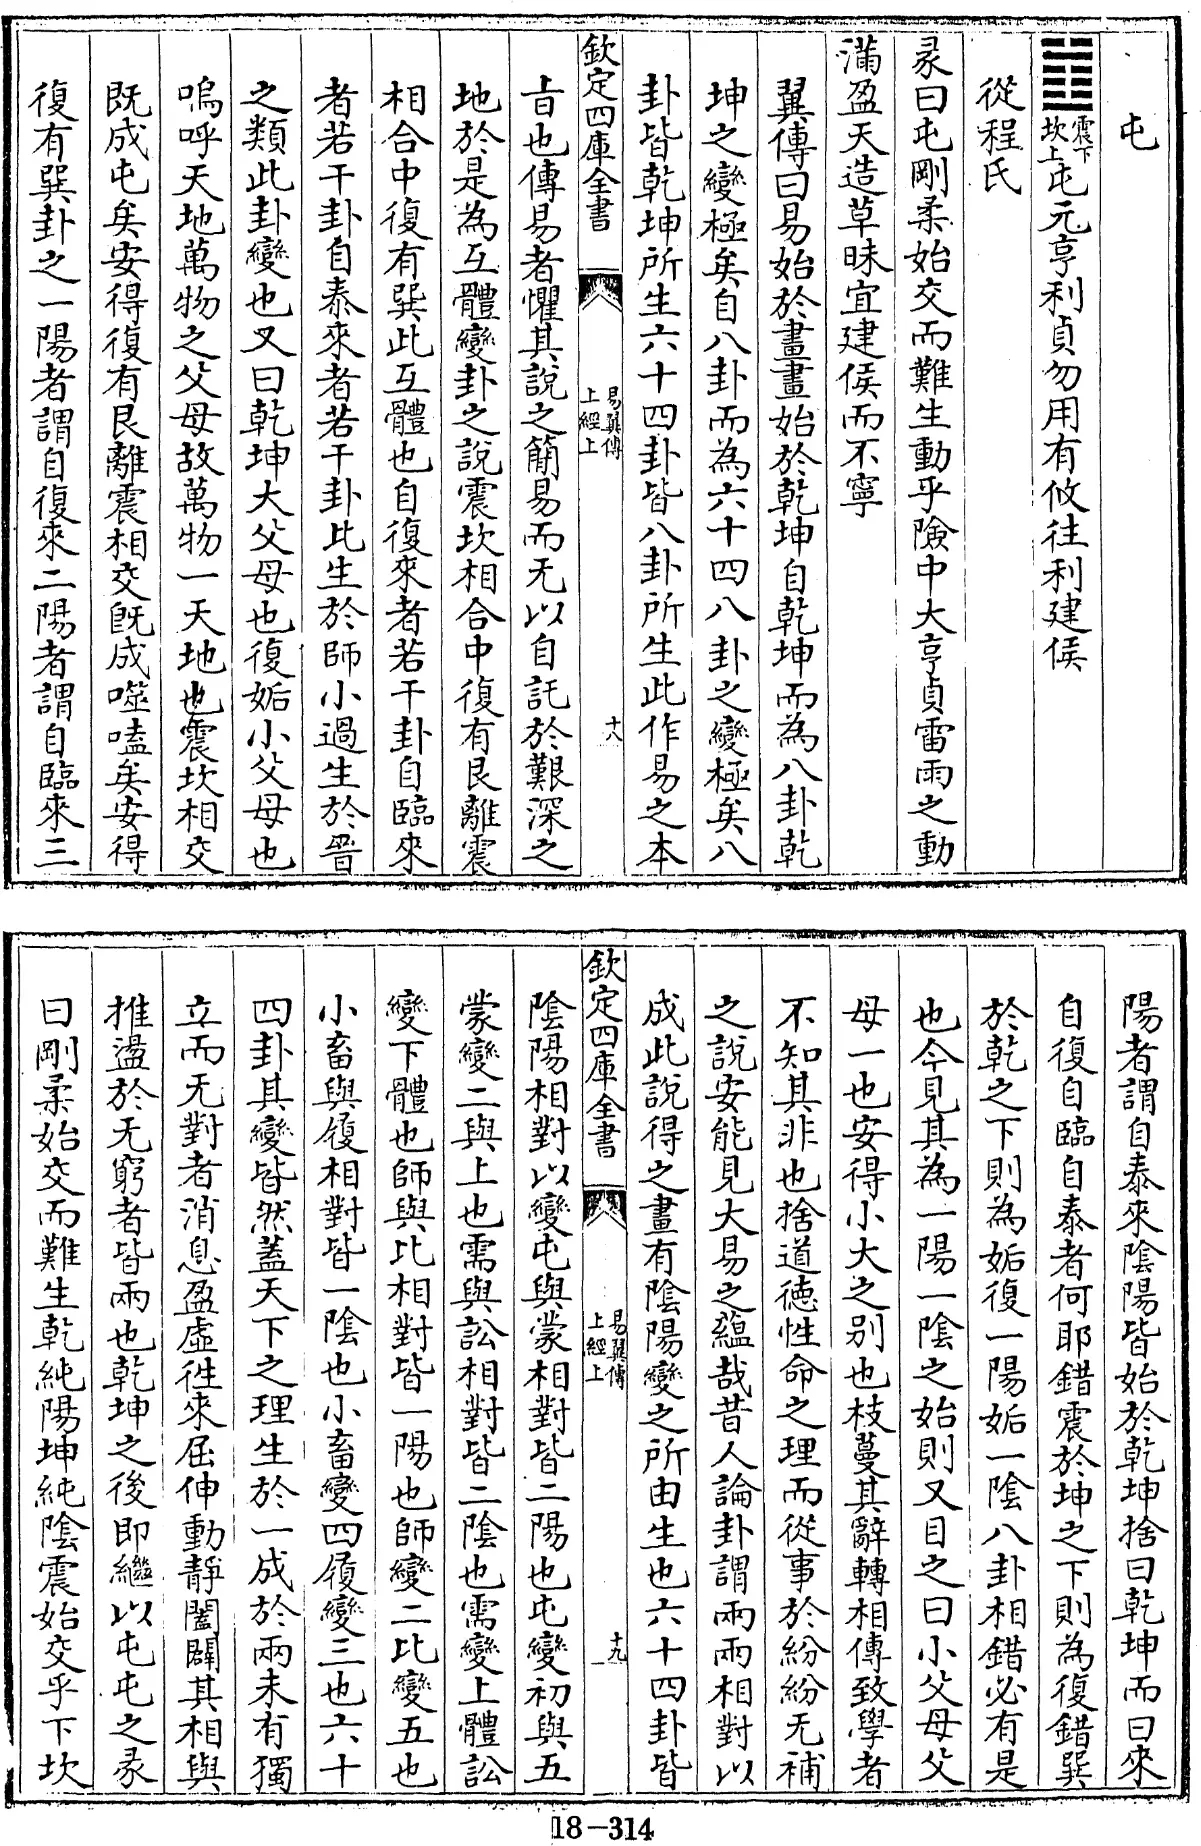 屯
震下坎上屯元亨利貞勿用有攸往利建侯
從程氏
彖曰屯剛柔始交而難生動乎險中大亨貞雷雨之動
滿盈天造草昧宜建侯而不寧
翼傳曰易始於畫畫始於乾坤自乾坤而為八卦乾
坤之變極矣自八卦而為六十四八卦之變極矣八
卦皆乾坤所生六十四卦皆八卦所生此作易之本
欽定四庫全書
易翼傳
上經上
十八
旨也傳易者懼其說之簡易而无以自託於艱深之
地於是為互體變卦之說震坎相合中復有艮離震
相合中復有巽此互體也自復來者若干卦自臨來
者若干卦自泰來者若干卦比生於師小過生於晉
之類此卦變也又曰乾坤大父母也復姤小父母也
嗚呼天地萬物之父母故萬物一天地也震坎相交
既成屯矣安得復有艮離震相交既成噬嗑矣安得
復有巽卦之一陽者謂自復來二陽者謂自臨來三
陽者謂自泰來陰陽皆始於乾坤捨曰乾坤而曰來
自復自臨自泰者何耶錯震於坤之下則為復錯巽
於乾之下則為姤復一陽姤一陰八卦相錯必有是
也今見其為一陽一陰之始則又目之曰小父母父
母一也安得小大之別也枝蔓其辭轉相傳致學者
不知其非也捨道德性命之理而從事於紛紛无補
之說安能見大易之蘊哉昔人論卦謂兩兩相對以
成此說得之畫有陰陽變之所由生也六十四卦皆
欽定四庫全書
易翼傳
上經上
十九
陰陽相對以變屯與蒙相對皆二陽也屯變初與五
蒙變二與上也需與訟相對皆二陰也需變上體訟
變下體也師與比相對皆一陽也師變二比變五也
小畜與履相對皆一陰也小畜變四履變三也六十
四卦其變皆然蓋天下之理生於一成於兩未有獨
立而无對者消息盈虛徃來屈伸動靜闔闢其相與
推盪於无窮者皆兩也乾坤之後即繼以屯屯之彖
曰剛柔始交而難生乾純陽坤純陰震始交乎下坎
18-314